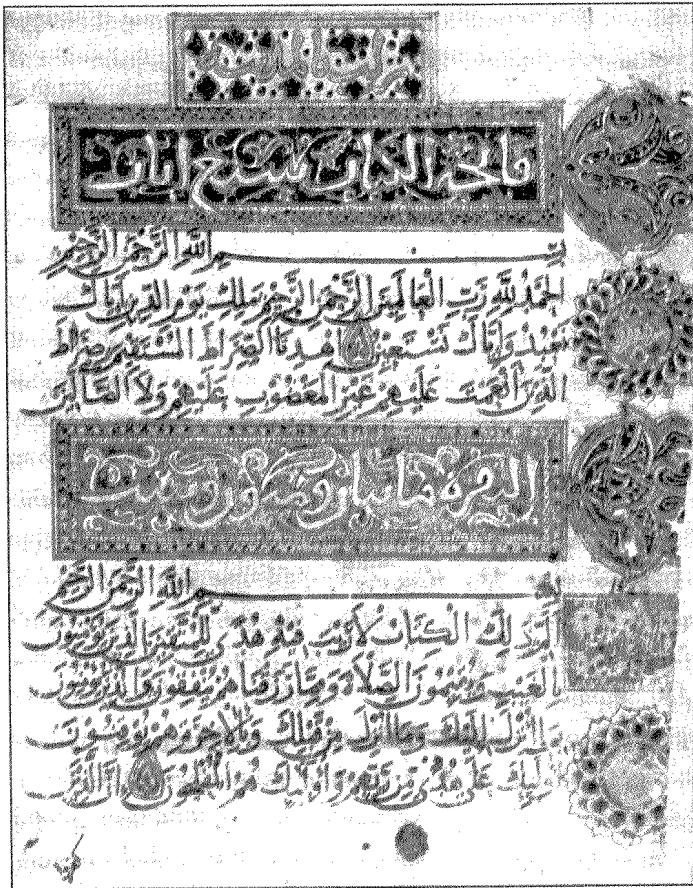 فاتحة الكتاب سبع ايات
بسم الله الرَّحْمَنِ الرَّحِيْمِ
الْحَمْدُ لِلَّهِ رَبِّ الْعَالَمِيْنَ الرَّحْمَنِ الرَّحِيْمِ مَلِكِ يَوْمِ الدِّيْنِ اِيَّاكَ
نَعْبُدُ وَاِيَّاكَ نَسْتَعِيْنُ اِهْدِنَا الصِّرَاطَ الْمُسْتَقِيْمَ صِرَاطَ
الَّذِيْنَ اَنْعَمْتَ عَلَيْهِمْ غَيْرِ الْمَغْضُوْبِ عَلَيْهِمْ وَلَا الضَّالِّيْنَ
البقرة مايتان وست
بسم الله الرَّحْمَنِ الرَّحِيْمِ
الم ذَلِكَ الْكِتَابُ لَا رَيْبَ فِيْهِ هُدًى لِلْمُتَّقِيْنَ الَّذِيْنَ يُؤْمِنُوْنَ
بِالْغَيْبِ وَيُقِيْمُوْنَ الصَّلَاةَ وَمِمَّا رَزَقْنَاهُمْ يُنْفِقُوْنَ وَالَّذِيْنَ يُؤْمِنُوْنَ
بِمَا اُنْزِلَ اِلَيْكَ وَمَا اُنْزِلَ مِنْ قَبْلِكَ وَبِالْاٰخِرَةِ هُمْ يُوْقِنُوْنَ
اُولٰئِكَ عَلَى هُدًى مِنْ رَبِّهِمْ وَاُولٰئِكَ هُمُ الْمُفْلِحُوْنَ اِنَّ الَّذِيْنَ